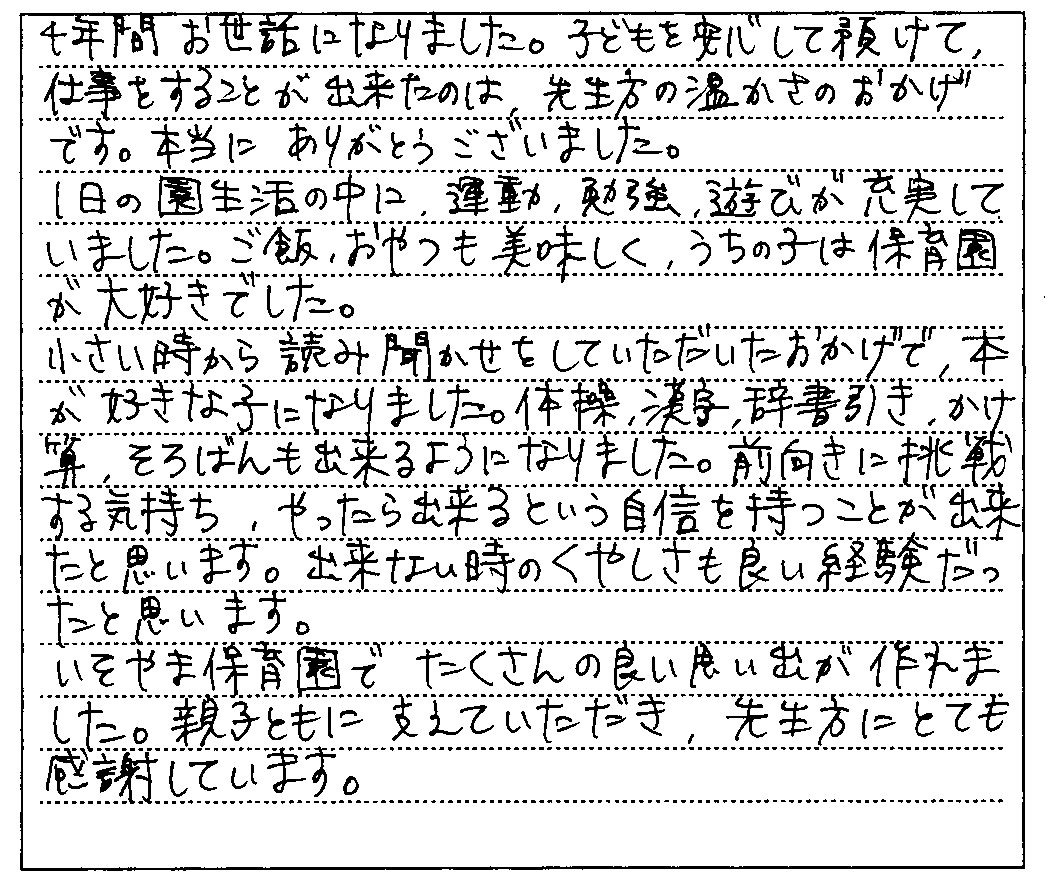 4年間 お世話になりました。子どもを安心して預けて,
仕事をすることが出来たのは, 先生方の温かさのおかげ
です。本当に ありがとうございました。
1日の園生活の中に, 運動, 勉強, 遊びが充実して
いました。ご飯, おやつも美味しく, うちの子は保育園
が大好きでした。
小さい時から読み聞かせをしていただいたおかげで, 本
が好きな子になりました。体操, 漢字, 辞書引き, かけ
算, そろばんも出来るようになりました。前向きに挑戦
する気持ち, やったら出来るという自信を持つことが出来
たと思います。出来ない時のくやしさも良い経験だっ
たと思います。
いそやま保育園で たくさんの良い思い出が作れま
した。親子ともに支えていただき, 先生方にとても
感謝しています。